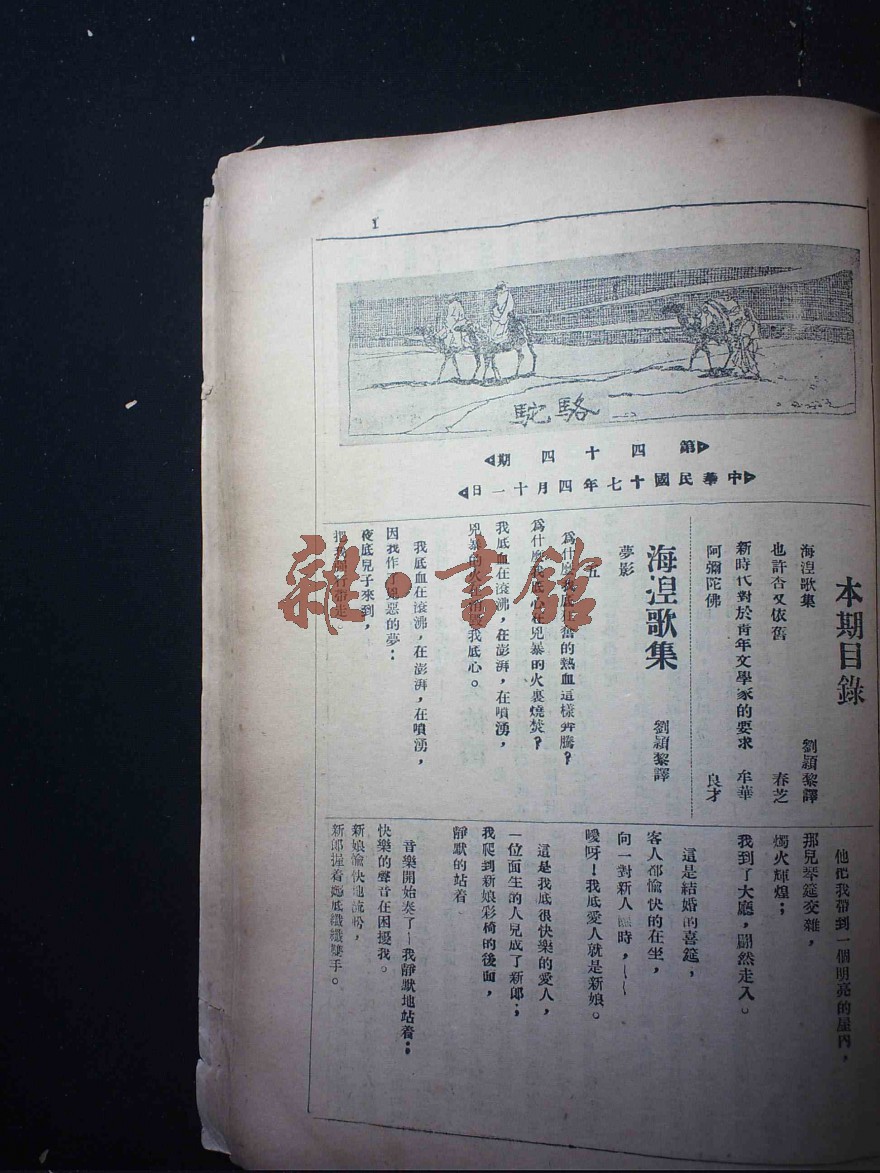 1
駱駝
第四十四期
中華民國十七年四月十一日
本期目錄
海涅歌集 劉穎黎譯
也許杏又依舊 春芝
新時代對於青年文學家的要求 牟華
阿彌陀佛 良才
海涅歌集 劉穎黎譯
夢影
五
為什麼我底狂奮的熱血這樣奔騰?
為什麼我底心在兇暴的火裏燒焚?
我底血在滾沸,在澎湃,在噴湧,
兇暴的火在我底心。
我底血在滾沸,在澎湃,在噴湧,
因我作了兇惡的夢:
夜底兒子來到,
把我
他把我帶到一個明亮的屋內,
那兒琴筵交雜,
燭火輝煌;
我到了大廳,闖然走入。
這是結婚的喜筵,
客人都愉快的在坐,
向一對新人時,——
噯呀!我底愛人就是新娘。
這是我底很快樂的愛人,
一位面生的人兒成了新郎;
我爬到新娘彩椅的後面,
靜默的站着
音樂開始奏了—我靜默地站着;
快樂的聲音在困擾我。
新娘愉快地流盼,
新郎握着她底纖纖雙手。
雜·書館